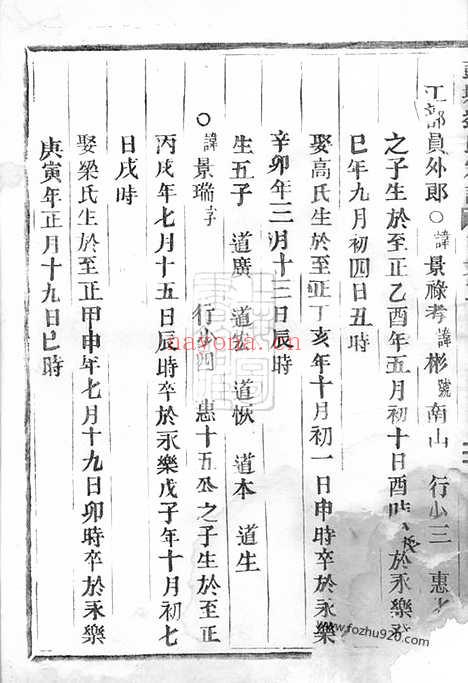 工部員外郎○諱景祿考諱彬號南山 行少三 惠
之子生於至正乙酉年五月初十日酉時 於永樂
巳年九月初四日丑時
娶高氏生於至正丁亥年十月初一日申時卒於永樂
辛卯年三月十三日辰時
生五子 道廣 道 道恢 道本 道生
○諱景瑞字 行少四 惠十五公之子生於至正
丙戌年七月十五日辰時卒於永樂戊子年十月初七
日戌時
娶梁氏生於至正甲申年七月十九日卯時卒於永樂
庚寅年正月十九日巳時
nayona.cn
www.fozhu920.com